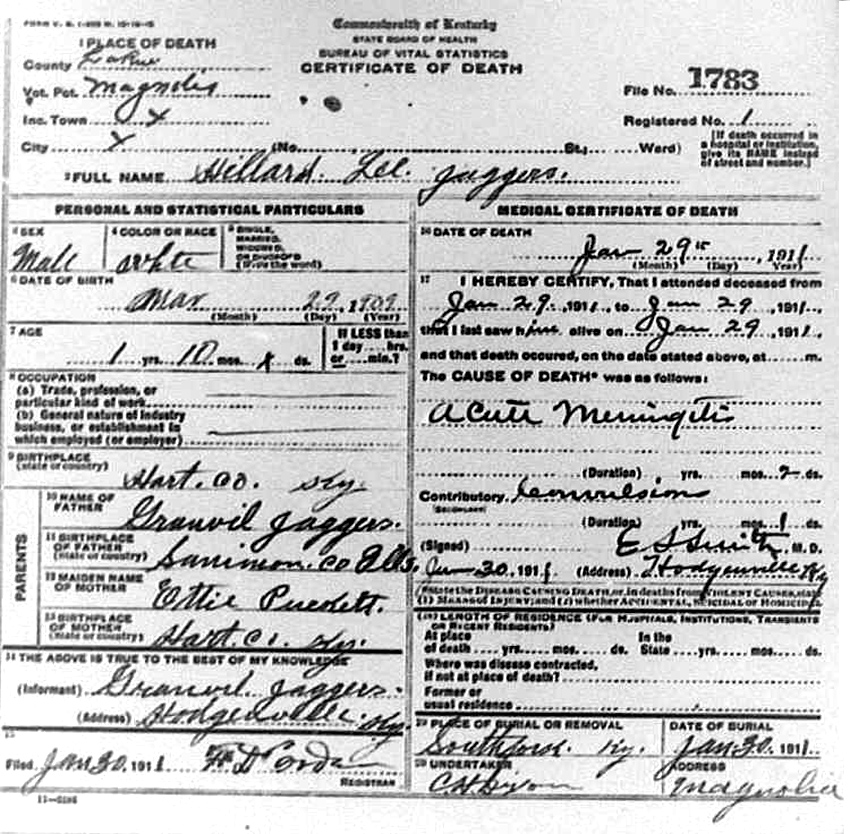 FORM V. S. 1-
Commonwealth of Kentucky
STATE BOARD OF HEALTH
BUREAU OF VITAL STATISTICS
CERTIFICATE OF DEATH
1 PLACE OF DEATH
County LaRue
Vot. Pct. Magnolia
Inc. Town x
City x (No. St., Ward)
File No. 1783
Registered No. 1
[If death occurred in
a hospital or institution,
give its NAME instead
of street and number.]
2 FULL NAME Hillard Lee Jaggers.
PERSONAL AND STATISTICAL PARTICULARS
3 SEX
Male
4 COLOR OR RACE
White
5 SINGLE,
MARRIED,
WIDOWED,
OR DIVORCED
(Write the word)
6 DATE OF BIRTH
Mar 29, 1909
(Month) (Day) (Year)
7 AGE
1 yrs. 10 mos. x ds.
If LESS than
1 day....hrs.
or....min.?
8 OCCUPATION
(a) Trade, profession, or
particular kind of work
(b) General nature of industry
business, or establishment in
which employed (or employer)
9 BIRTHPLACE
(State or country)
Hart. Co. Ky.
PARENTS
10 NAME OF
FATHER
Granvil Jaggers.
11 BIRTHPLACE
OF FATHER
(State or country)
Co Ills.
12 MAIDEN NAME
OF MOTHER
Ettie Puckett.
13 BIRTHPLACE
OF MOTHER
(State or country)
Hart. Co. Ky.
14 THE ABOVE IS TRUE TO THE BEST OF MY KNOWLEDGE
(Informant) Granvil Jaggers.
(Address) Hodgenville Ky.
15
Filed Jan 30. 1911
REGISTRAR
MEDICAL CERTIFICATE OF DEATH
16 DATE OF DEATH
Jan 29th, 1911
(Month) (Day) (Year)
17 I HEREBY CERTIFY, That I attended deceased from
Jan 29, 1911, to Jan 29 1911,
that I last saw him alive on Jan 29 1911,
and that death occured, on the date stated above, at......m.
The CAUSE OF DEATH* was as follows:
Acute Meningitis
(Duration) yrs. mos. 2 ds.
Contributory Convulsions
(Secondary)
(Duration) yrs. mos. 1 ds.
(Signed) E S Smith, M. D.
Jan 30, 1911 (Address) Hodgenville Ky
*State the DISEASE CAUSING DEATH, or, in deaths from VIOLENT CAUSES, state
(1) MEANS OF INJURY; and (2) whether ACCIDENTAL, SUICIDAL OR HOMICIDAL
18 LENGTH OF RESIDENCE (FOR HOSPITALS, INSTITUTIONS, TRANSIENTS
OR RECENT RESIDENTS)
At place
of death.....yrs.....mos.....ds.
In the
State.....yrs.....mos.....ds.
Where was disease contracted,
if not at place of death?
Former or
usual residence
19 PLACE OF BURIAL OR REMOVAL
Ky.
DATE OF BURIAL
Jan 30 1911
20 UNDERTAKER
C H Dixon
ADDRESS
Magnolia